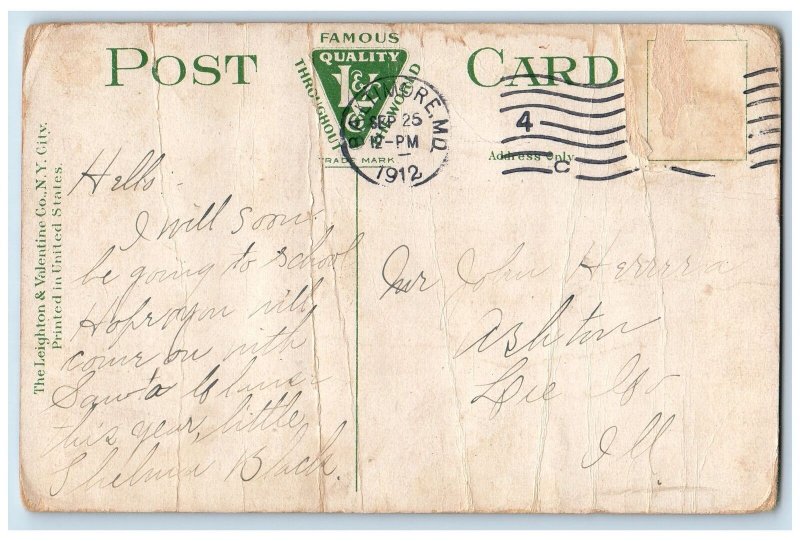 POST CARD
FAMOUS
QUALITY
L & V Co
THROUGHOUT THE WORLD
TRADE MARK
BALTIMORE, MD.
SEP 25
12-PM
1912
4
C
Address Only
The Leighton & Valentine Co., N.Y. City.
Printed in United States.
Hello -
I will soon
be going to school
Hope you will
come on with
Santa Claus
this year, little
Thelma Black.
Mr John
Ashton
Lee Co
Ill.